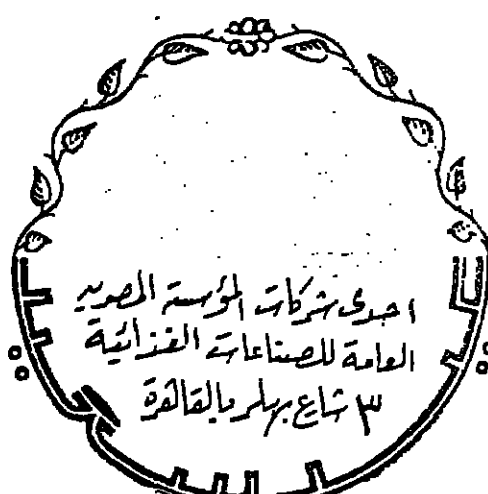 احدى شركات المؤسسة المصرية
العامة للصناعات الغذائية
٣ شارع بهلر بالقاهرة